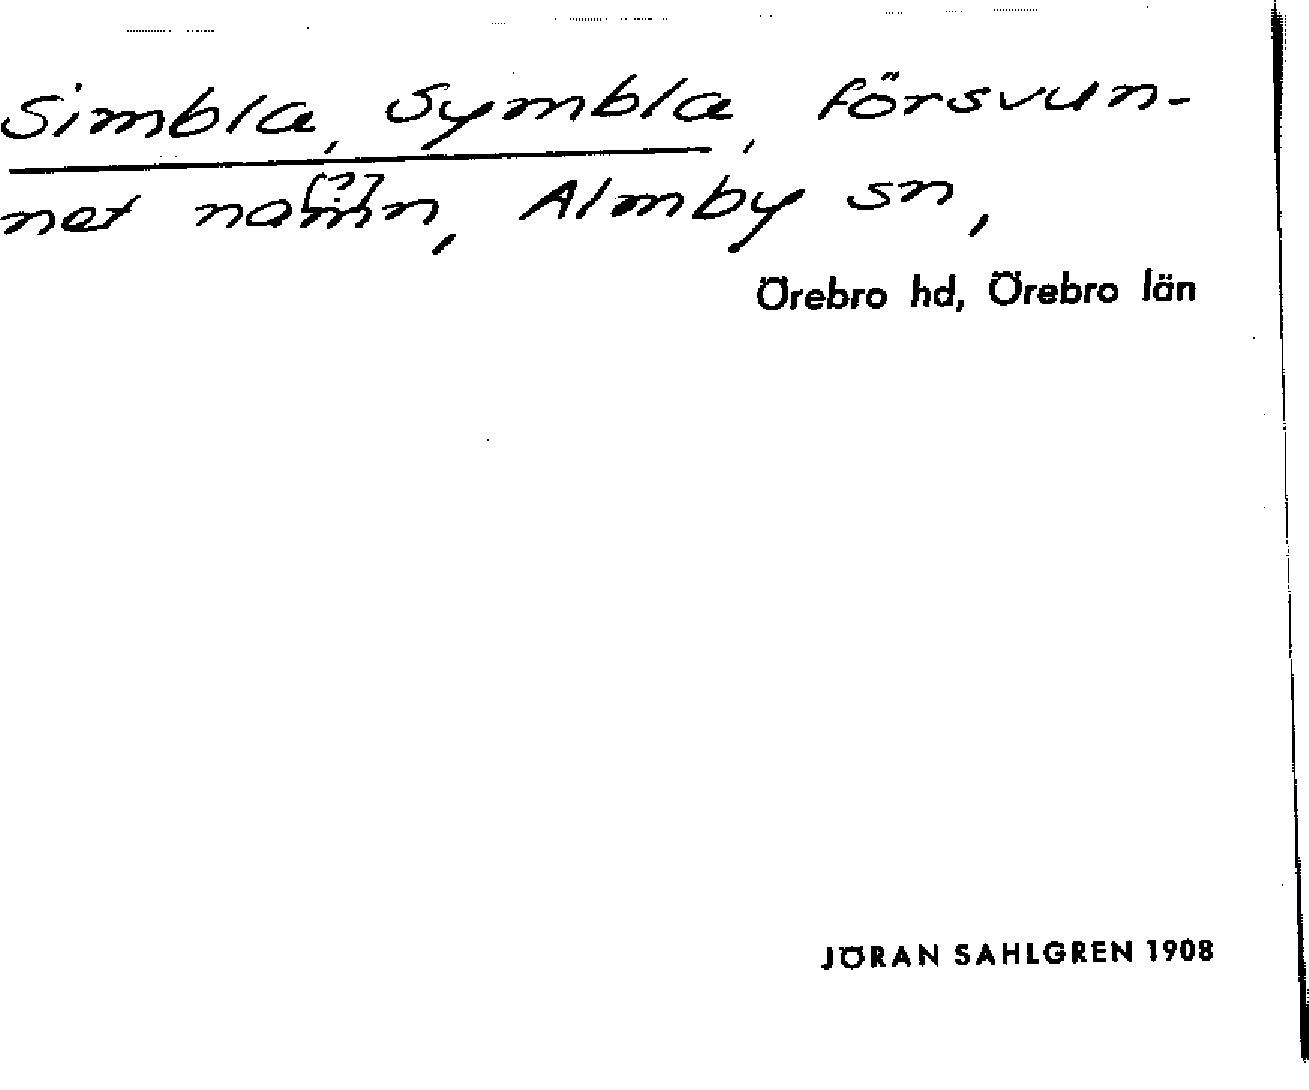 Simbla, Symbla, försvun-
net namn [?], Almby sn,
Örebro hd, Örebro län
JÖRAN SAHLGREN 1908